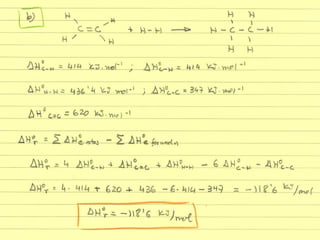 b)
H H C = C H H + H - H → H H H - C - C - H H H
ΔH°C-H = 414 kJ·mol⁻¹ ; ΔH°C-H = 414 kJ·mol⁻¹
ΔH°H-H = 436'4 kJ·mol⁻¹ ; ΔH°C-C = 347 kJ·mol⁻¹
ΔH°C=C = 620 kJ·mol⁻¹
ΔH°r = Σ ΔH°e rotos - Σ ΔH°e formados
ΔH°r = 4 ΔH°C-H + ΔH°C=C + ΔH°H-H - 6 ΔH°C-H - ΔH°C-C
ΔH°r = 4·414 + 620 + 436 - 6·414 - 347 = -118'6 kJ/mol
ΔH°r = -118'6 kJ/mol